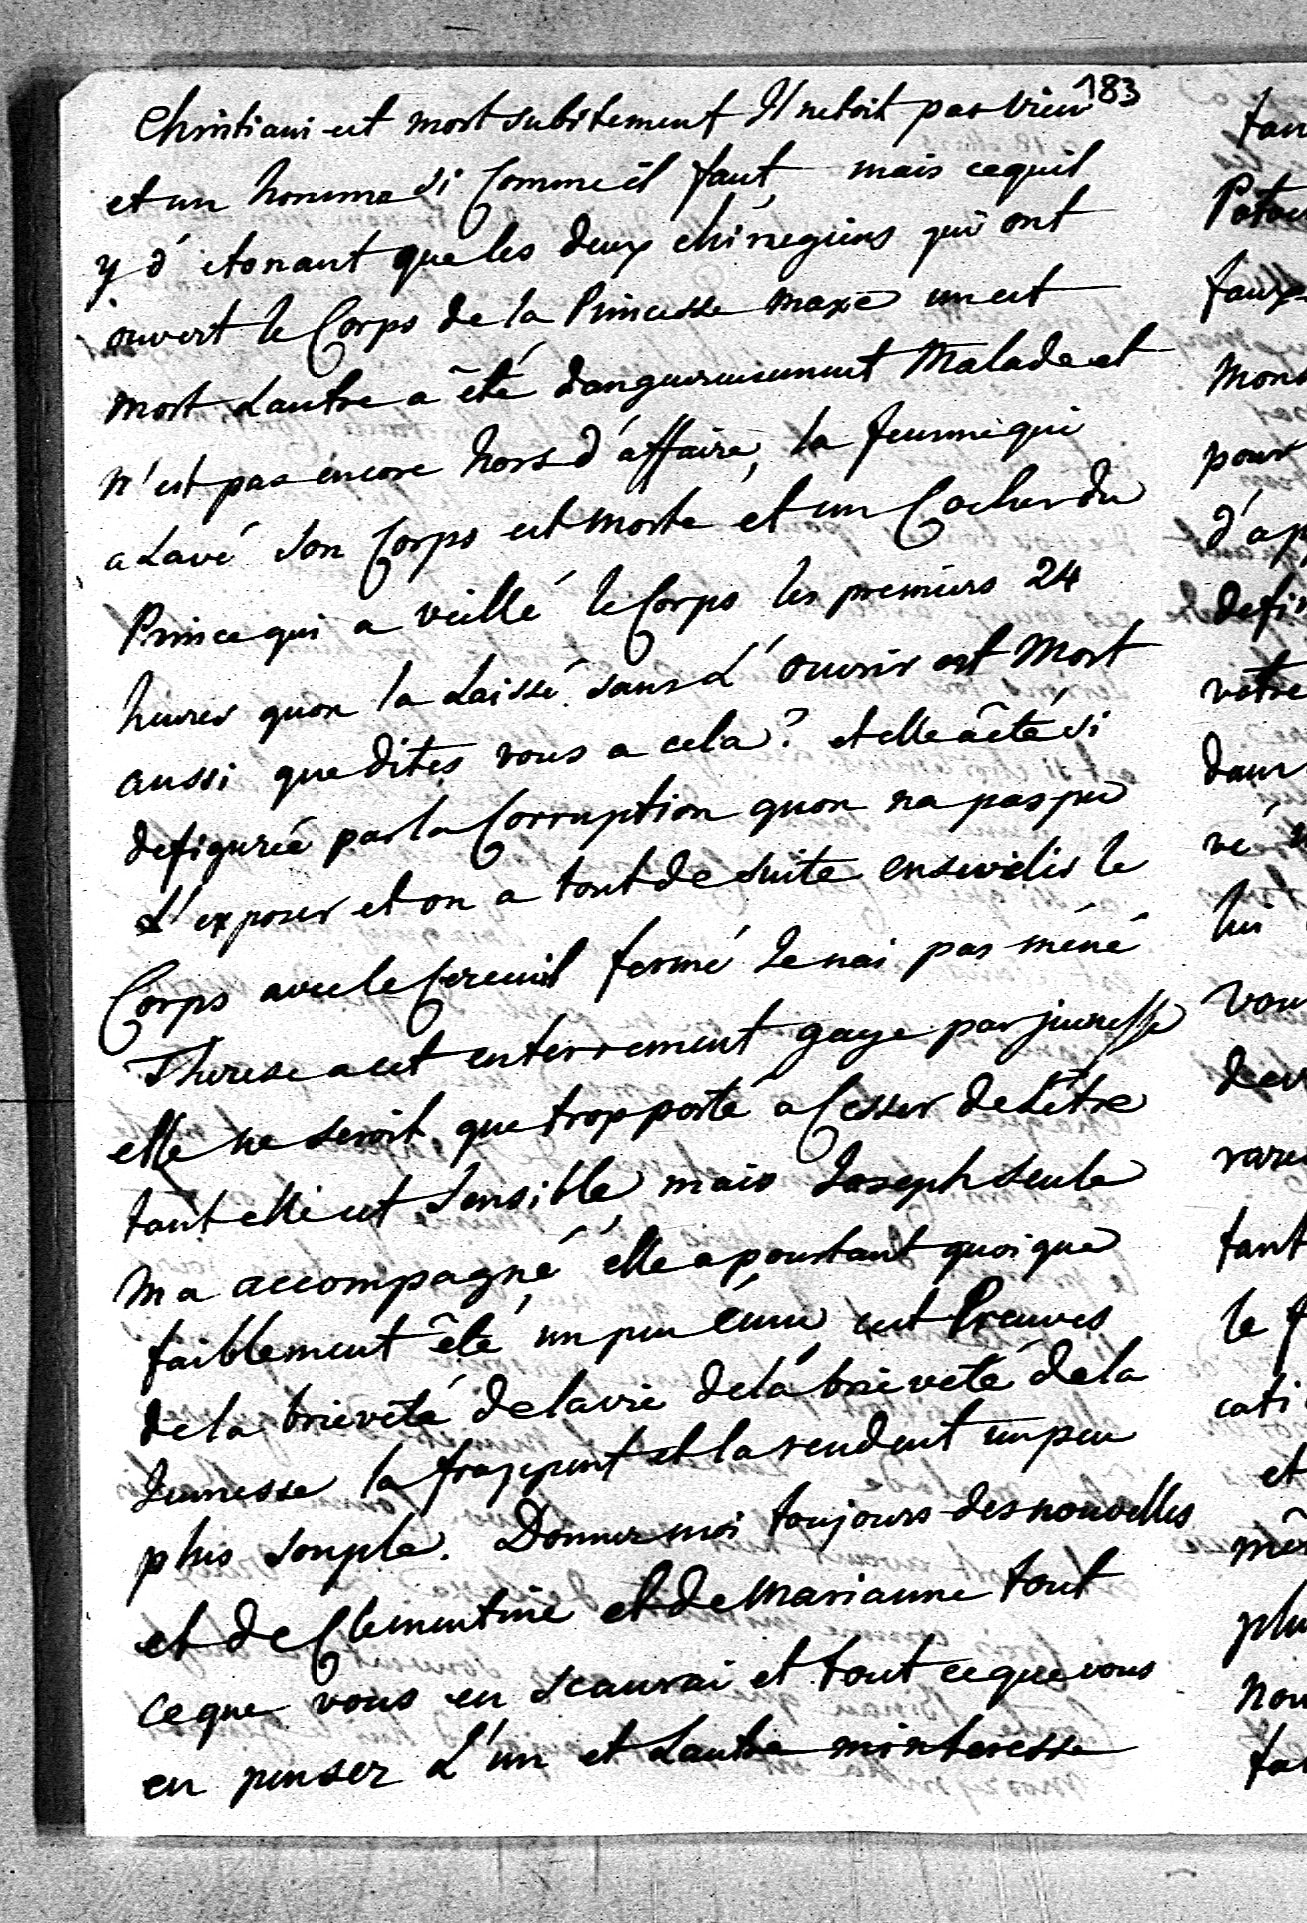 183
Christiani est mort subitement Il netoit pas vieu
et un homme si Comme il faut, mais cequil
y d' etonant que les deux chiregiens qui ont
ouvert le Corps de la Princesse maxe un est
mort Lautre a êté dangereusement Malade et
n'est pas encore hors d'affaire, la femme qui
a Lavé Son Corps est morte et un Cocher du
Prince qui a veillé le Corps les premiers 24
heures quon la Laissé sans L'ouvrir est Mort
aussi que dites vous a cela? et elle a êté si
defigureé par la Corruption quon na pas pu
L'exposer et on a tout de suite ensevelir le
Corps avec le Cerceuil fermé Je nai pas méné
Therese a cet enterrement gaye par jeunesse
elle ne seroit que trop porté a Cesser de Létre
tant elle est Sensible, mais Joseph seule
ma accompagné elle a pourtant quoi que
faiblement êté un peu émue, cest Preuves
de la brieveté de la vie de la brieveté de la
Jeunesse la frappent et la rendent un peu
plus souple. Donner moi toujours des nouvelles
et de Clementine et de Marianne tout
ce que vous en scaurai et tout ce que vous
en penser L'un et Lautre minteresse
tan
faux
pour
d'ap
votre
dans
lui
vou
tant
le f
cati
et
plu
nou